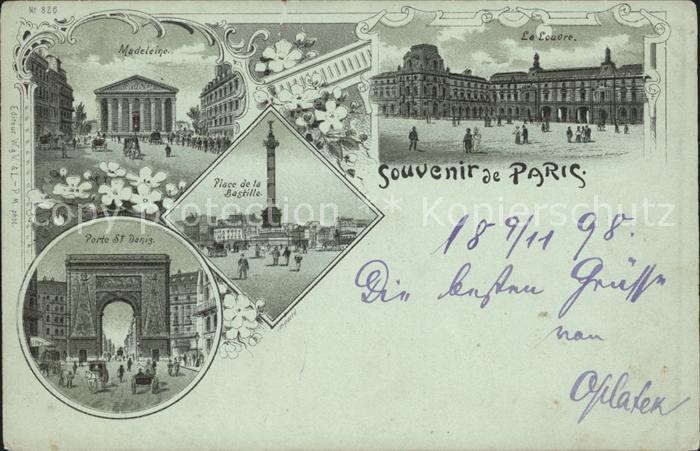 Nr 826
Madeleine.
Le Louvre.
Place de la
Bastille.
Souvenir de PARIS.
Porte St Denis.
Copy protection Kopierschutz
18 9/11 98.
Die besten Grüsse
von